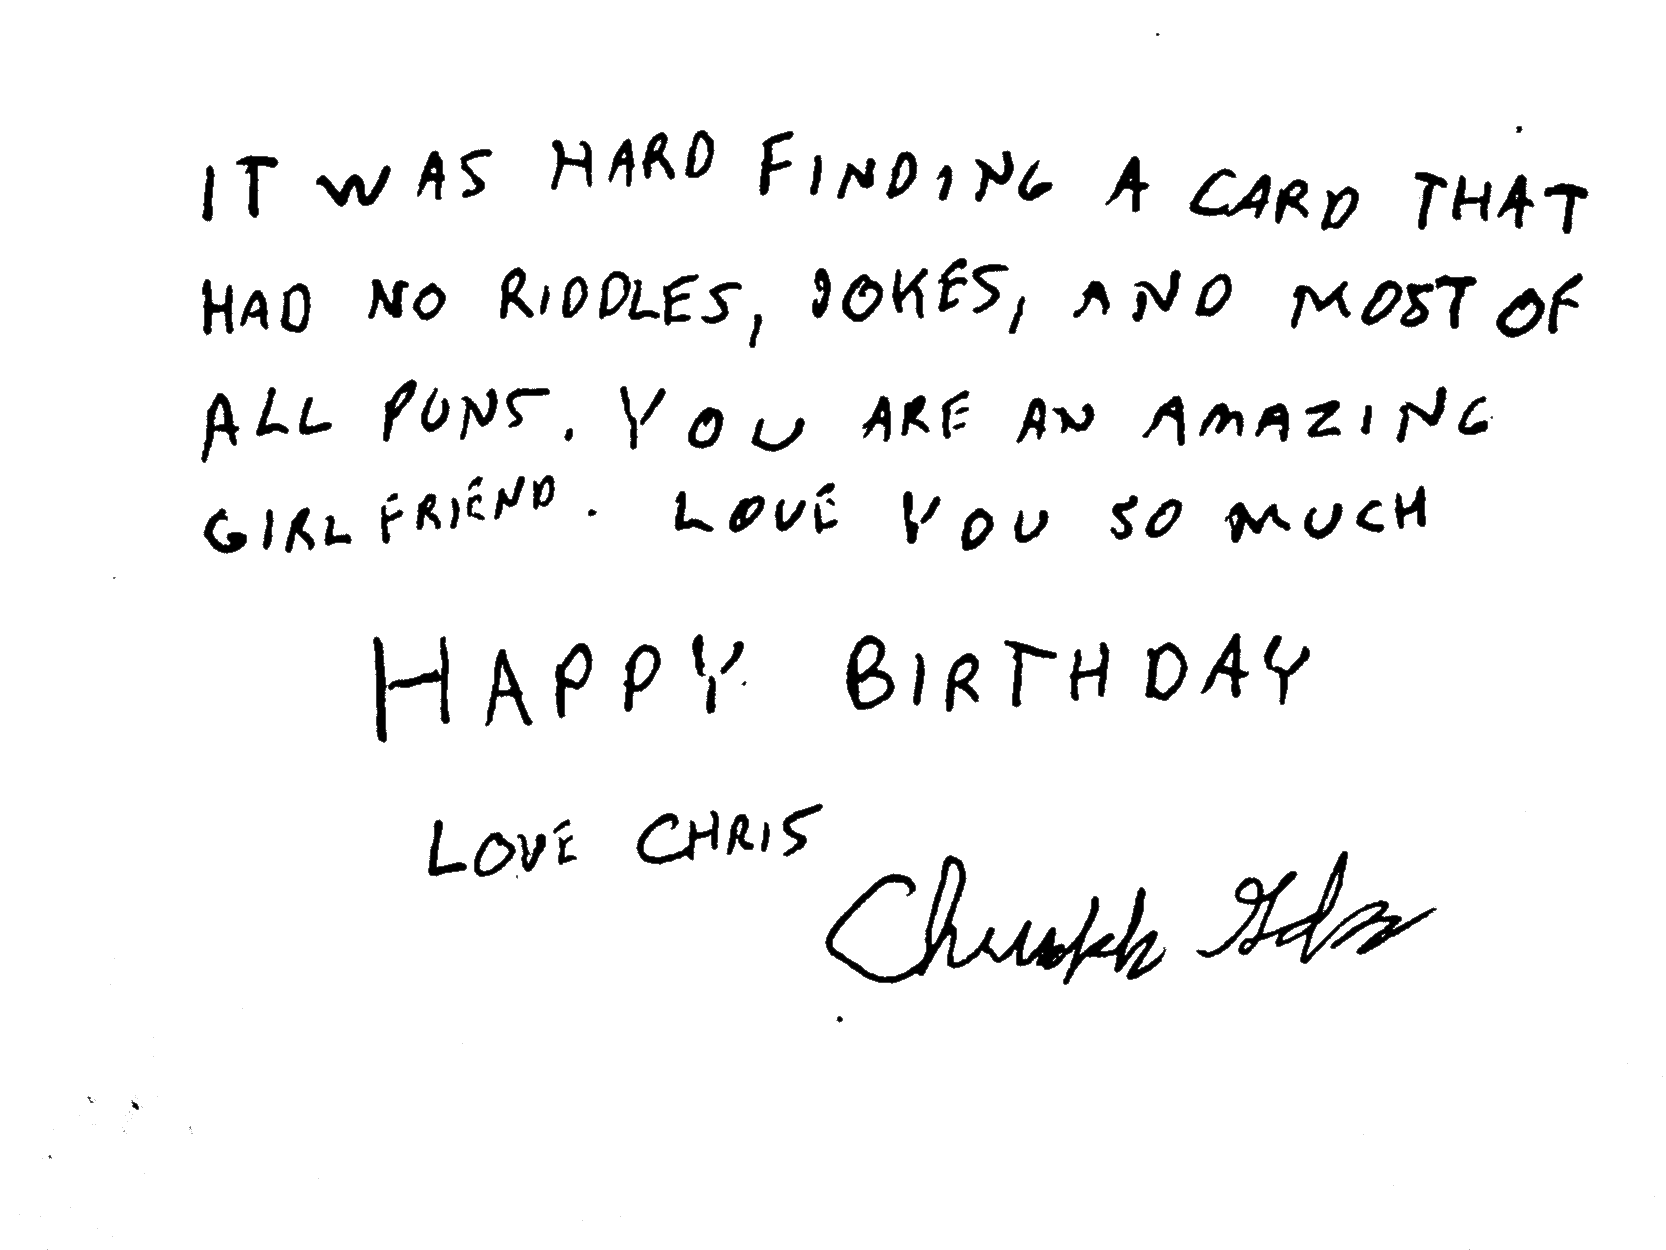 IT WAS HARD FINDING A CARD THAT
HAD NO RIDDLES, JOKES, AND MOST OF
ALL PUNS. YOU ARE AN AMAZING
GIRLFRIEND. LOVE YOU SO MUCH
HAPPY BIRTHDAY
LOVE CHRIS